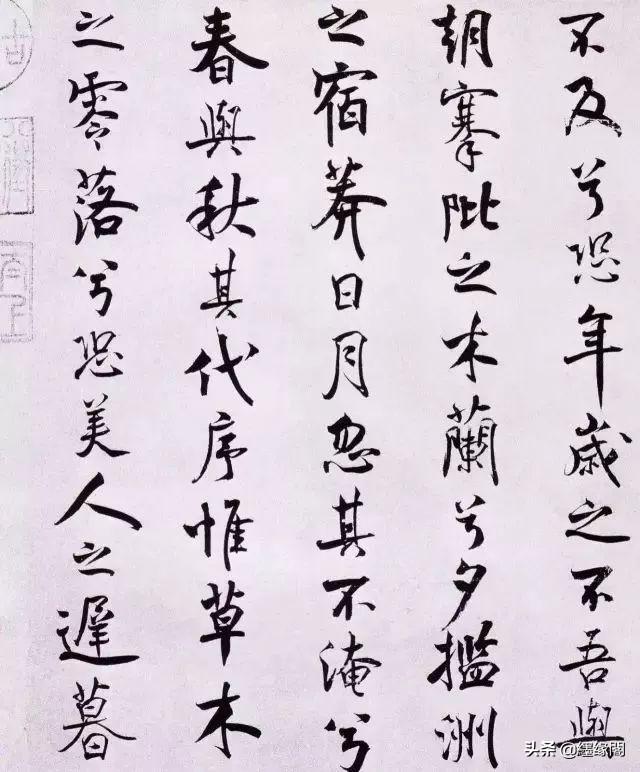 不及兮恐年歲之不吾與
朝搴阰之木蘭兮夕擥洲
之宿莽日月忽其不淹兮
春與秋其代序惟草木
之零落兮恐美人之遲暮
头条 @墨缘閣